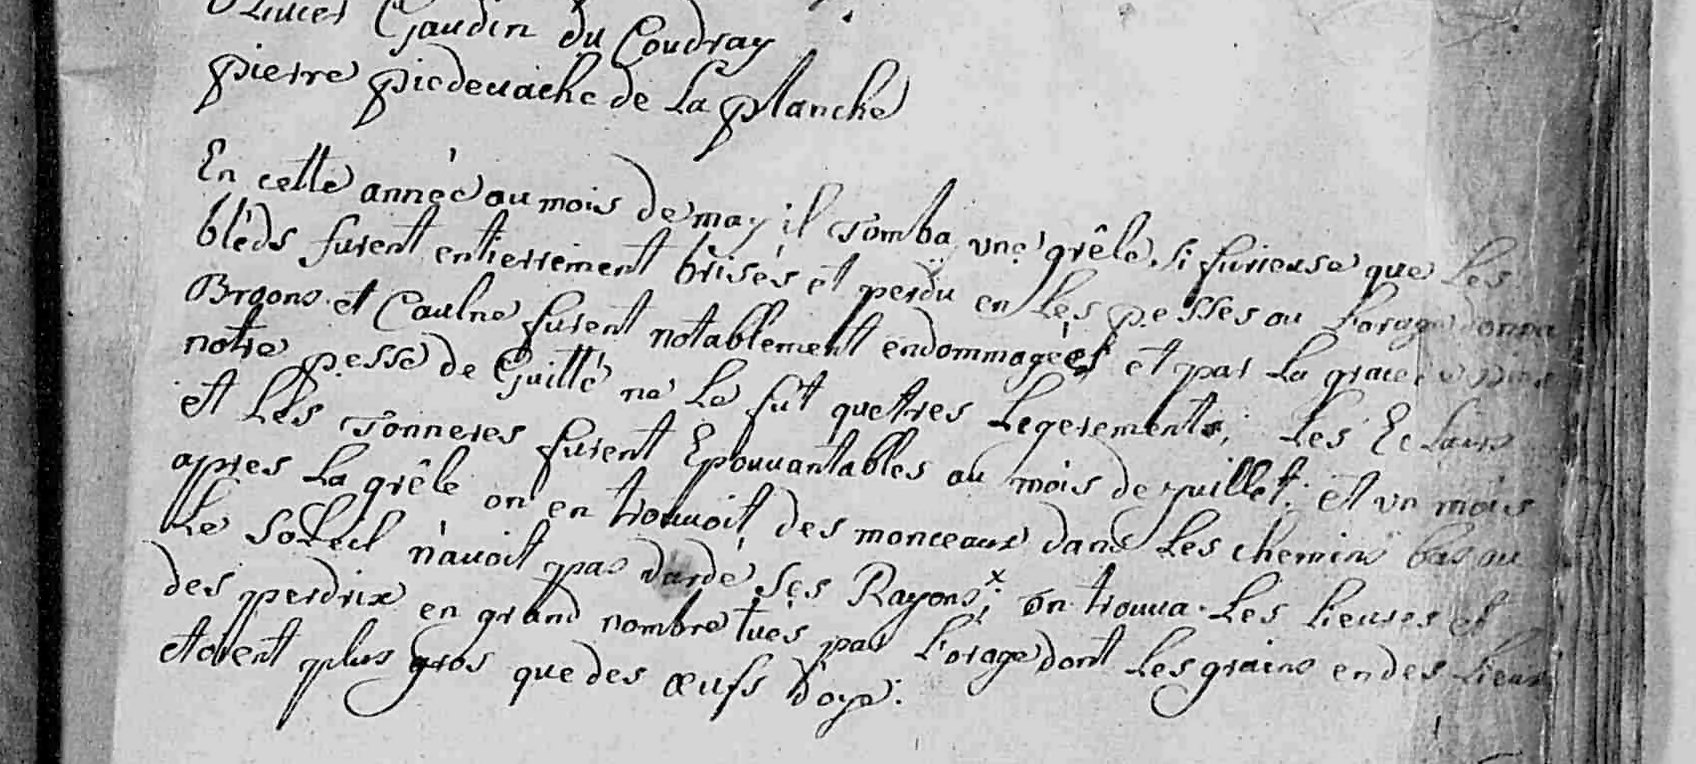 Olliver Gaudin du Coudray
pierre piedevache de La planche
En cette année au mois de may il Tomba vne grêle Si furieuse que Les
bléds furent entierrement brisés et perdu en Les pesses ou Lorage donna
Braons et Caulne furent notablement endommagées et par La grace
notre pesse de Guitté ne Le fut que tres Legerement; Les Eclairs
et Les Tonneres furent Epouuantables au mois de juillet; et vn mois
apres La grêle on en trouuoit des monceaux dans Les chemins bas ou
Le Soleil n'auoit pas dardé Ses Rayons; x on trouua Les lieures et
des perdrix en grand nombre tués par Lorage dont Les grains en des Lieux
etoient plus gros que des œufs doye.